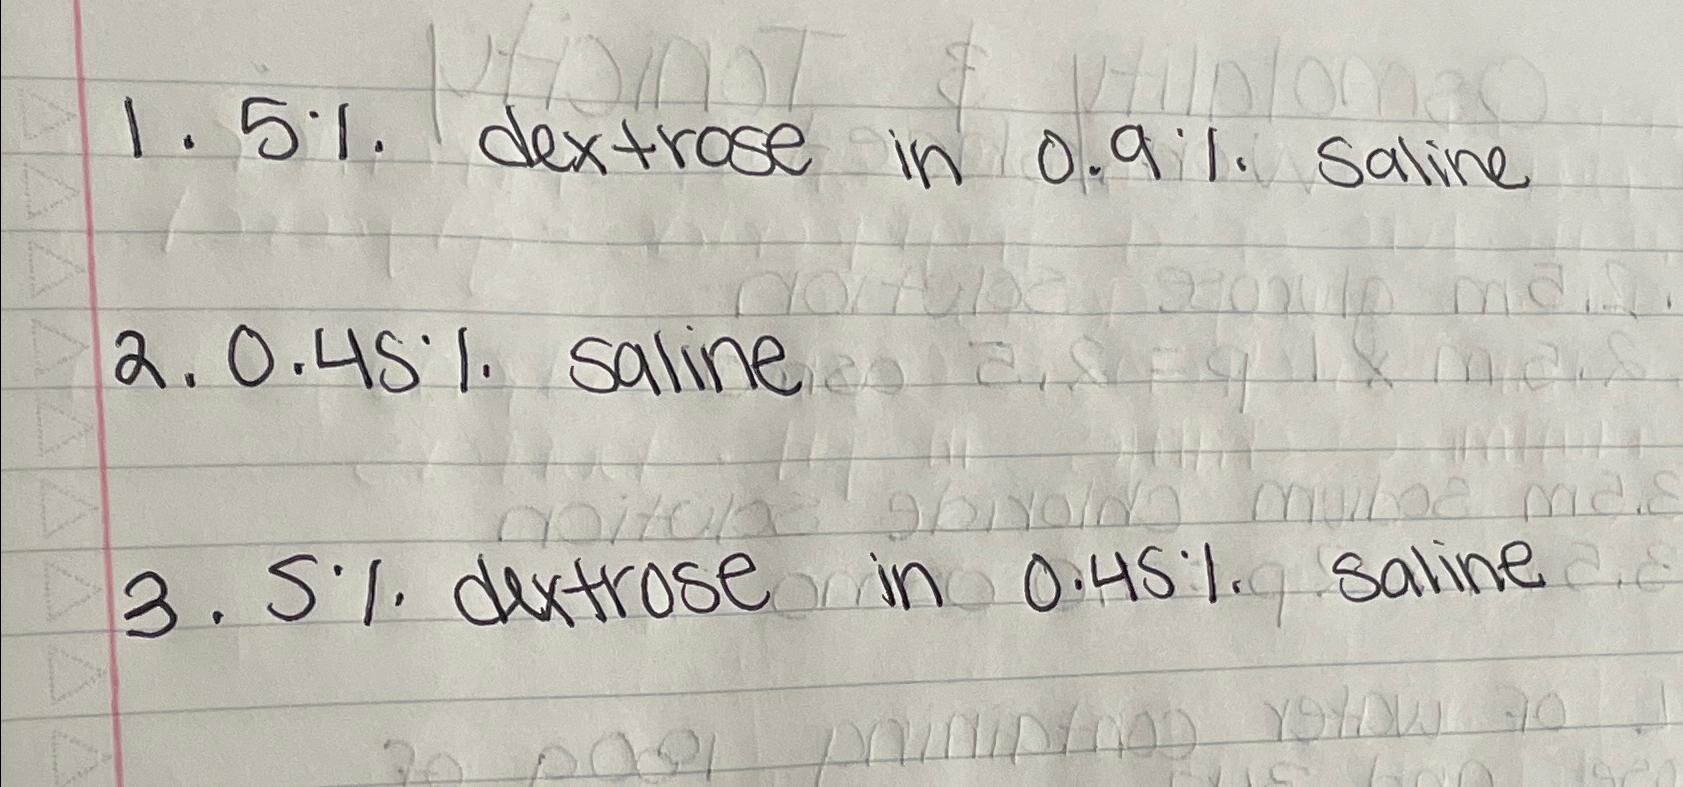 1. 5% dextrose in 0.9% saline
2. 0.45% saline
3. 5% dextrose in 0.45% saline